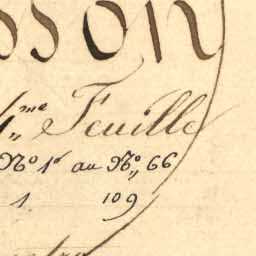 SSON
4me Feuille
No 1er au No 66
1 109